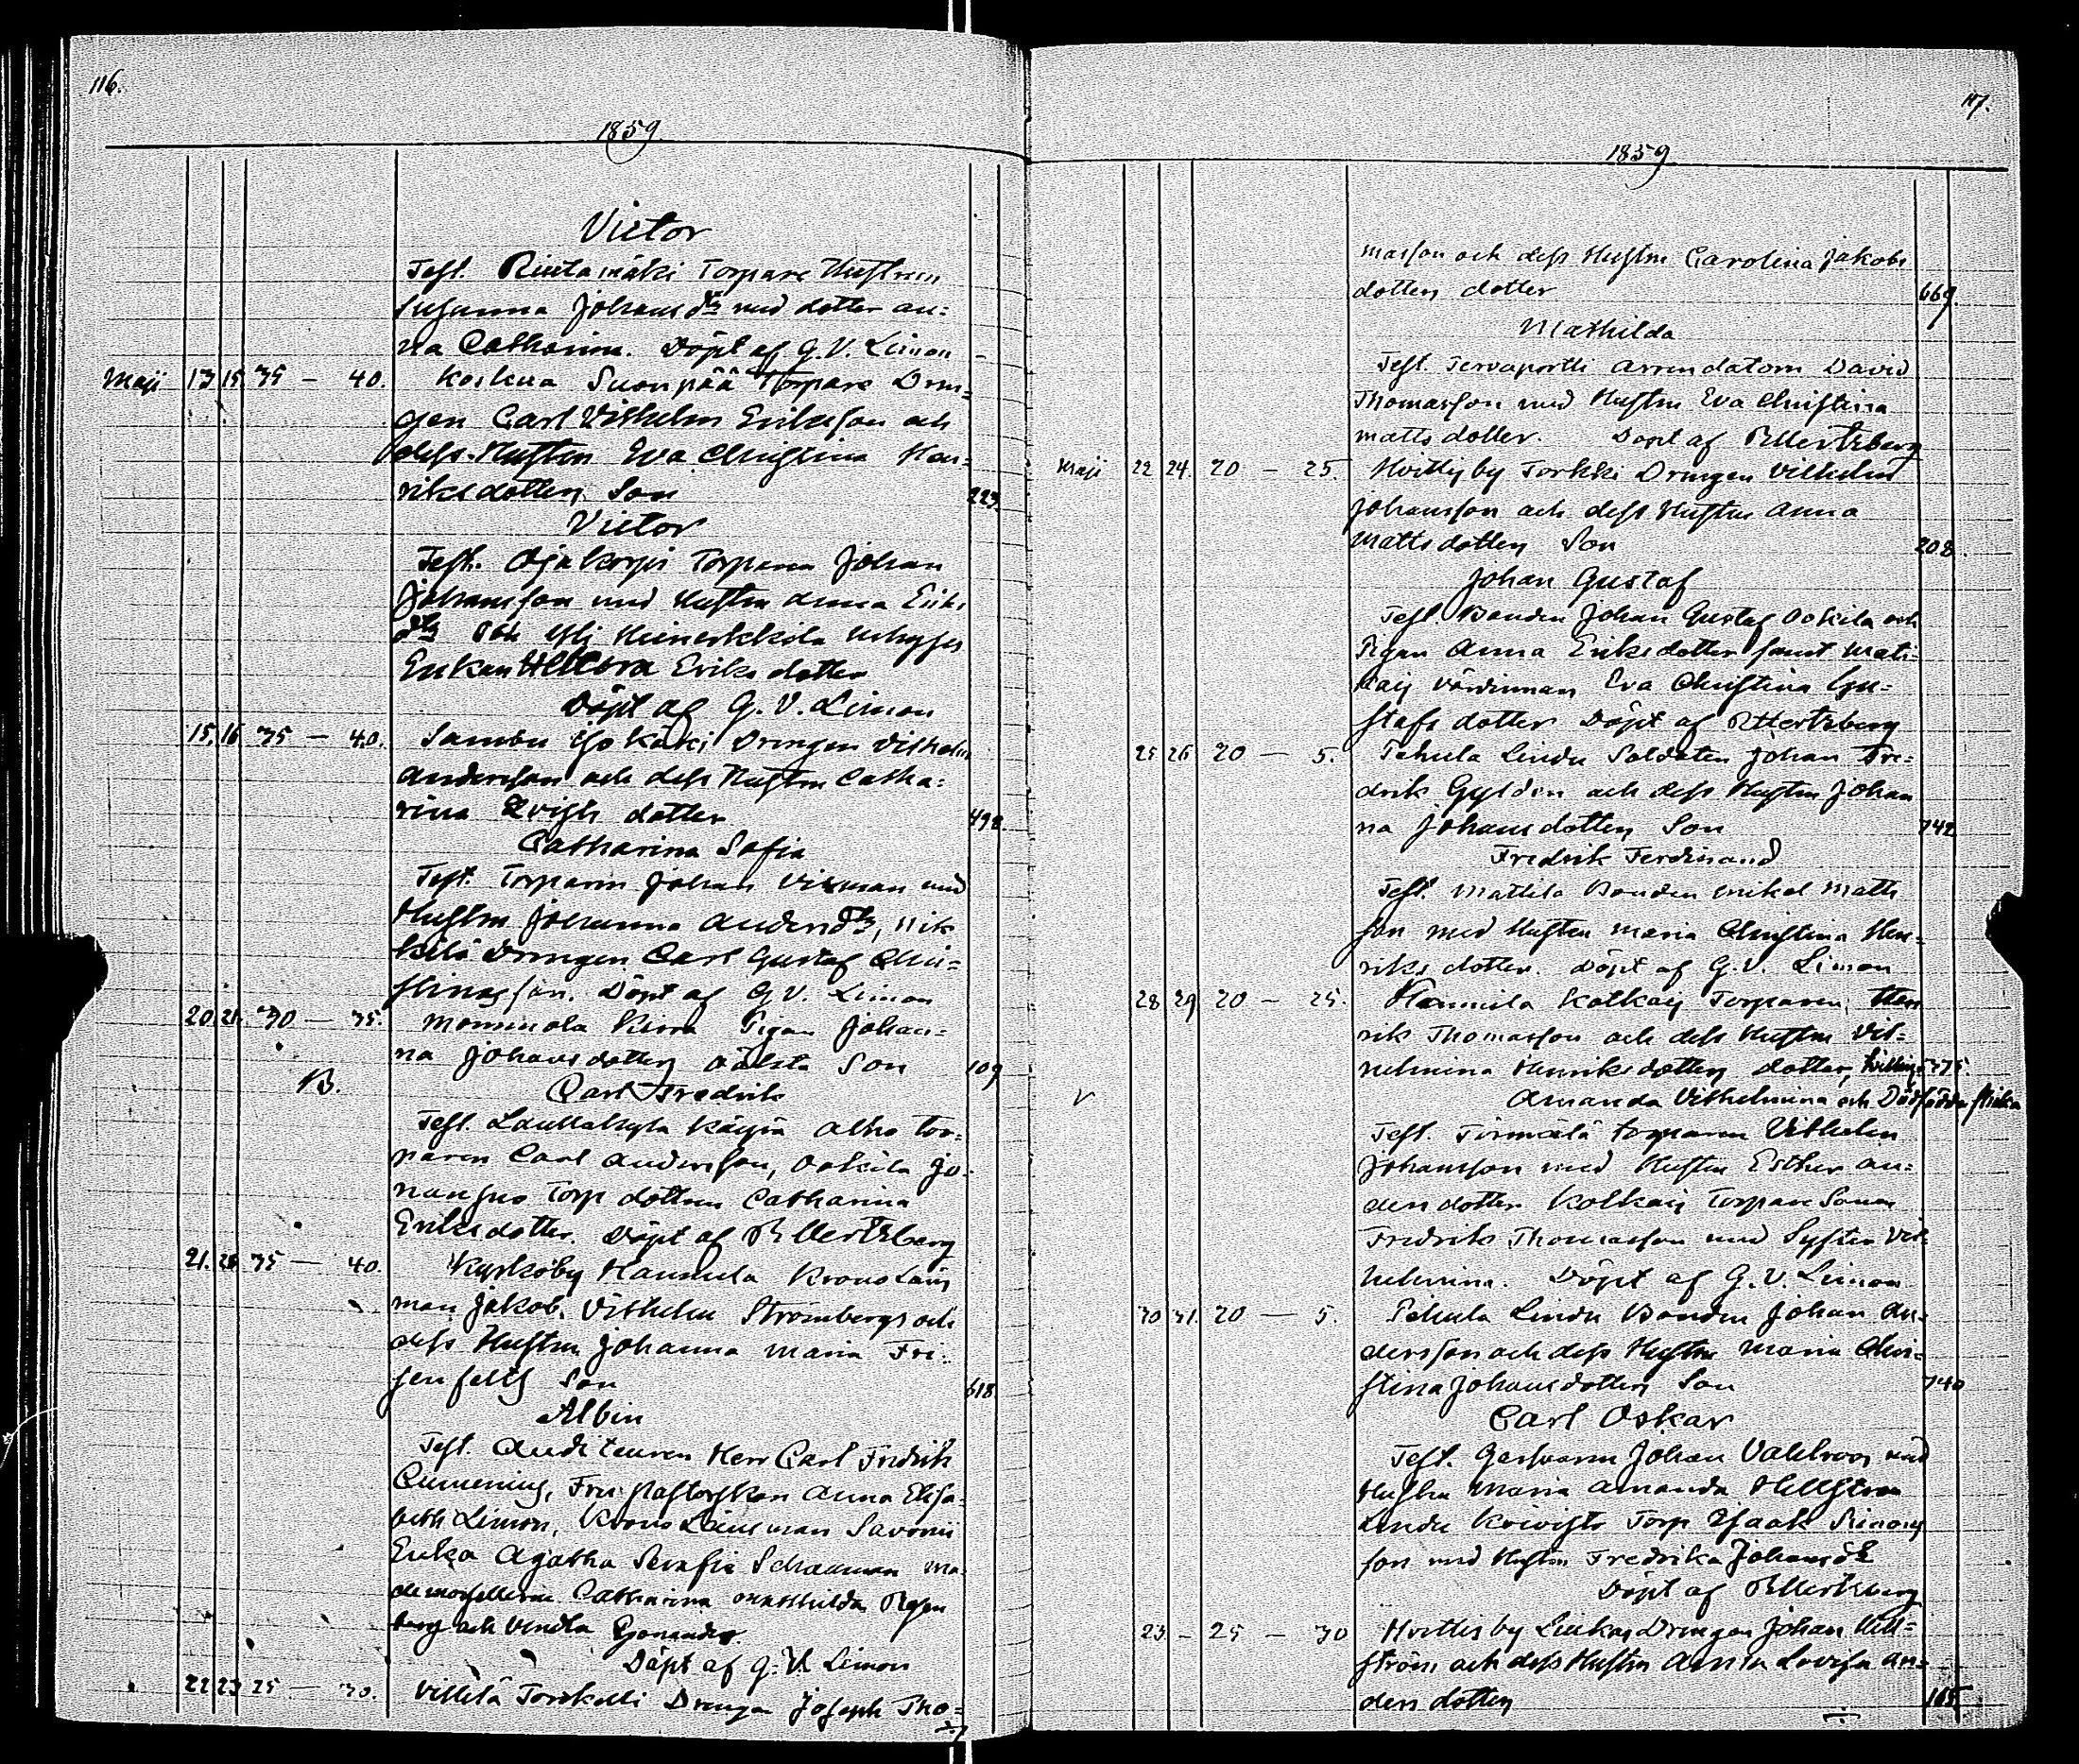 116.
1859
Victor
Test. Rintamäki Torpare Hustrun
Susanna Johansdtr med dotter An=
na Catharina. Döpt af G. V. Limon
Maji 13 15 35 — 40. Koskua Suonpää Torpare Dren=
gen Carl Vilhelm Eriksson och
dess Hustru Eva Christina Hen=
riksdotters Son 223
Victor
Test. Ojakorpi Torparen Johan
Johansson med Hustru Anna Eriks
dtr
Döpt af G. V. Limon
15. 16 35 — 40. Drengen Vilhelm
Andersson och dess Hustru Catha=
rina dotter 498
Catharina Sofia
Test. Torparen Johan med
Hustru Johanna Andersdtr, Nik
kilä Drengen Carl Gustaf Chri=
stinasson. Döpt af G. V. Limon
20. 21. 30 — 35. Mommola Pigan Johan=
na Johansdotters oäkta Son 109
B.
Carl Fredrik
Test.
paren Carl Andersson,
Torp dottren Catharina
Eriksdotter. Döpt af R Mertzberg
21. 35 — 40. Kyrkoby Hannula Kronolän
man Jakob Vilhelm Strömbergs och
dess Hustru Johanna Maria Fri=
senfelts Son 618
Albin
Test. Auditeuren Herr Carl Fredrik
Cumenius, Fru Pastorskan Anna Elisa=
beth Limon, Kronolänsman
Erika Agatha Serafia Schauman ma=
demoisellerne Catharina Mathilda
berg och Vendla
Döpt af G. V. Limon
22 23 25 — 30. Villilä Torkkeli Drengen Joseph Tho=
117.
1859
masson och dess Hustru Carolina Jakobs
dotters dotter 669.
Mathilda
Test. Tervaportti Arrendatorn David
Thomasson med Hustru Eva Christina
Mattsdotter. Döpt af R Mertzberg
Maji 22 24. 20 — 25. Hvittis by Torkki Drengen Vilhelm
Johansson och dess Hustru Anna
Mattsdotters Son 208.
Johan Gustaf
Test. Bonden Johan Gustaf Ookila och
Pigan Anna Eriksdotter samt
värdinnan Eva Christina Gu=
stafsdotter Döpt af R Mertzberg
25 26 20 — 5. Pehula Lindu Soldaten Johan Fre=
drik Gyldén och dess Hustru Johan
na Johansdotters Son 742
Fredrik Ferdinand
Test. Mattila Bonden Mikel Matts
son med Hustru Maria Christina Hen=
riksdotter. Döpt af G. V. Limon
28 29 20 — 25. Kolkais Torparen Hen
rik Thomasson och dess Hustru Vil=
helmina Henriksdotters dotter,
Amanda Vilhelmina och Dödfödda flicka
Test. Torparen Vilhelm
Johansson med Hustru Esther An=
dersdotter Kolkais Torpare Sonen
Fredrik Thomasson med Syster Vil=
helmina. Döpt af G. V. Limon
30 31. 20 — 5. Pehula Lindu Bonden Johan An=
dersson och dess Hustru Maria Chri=
stina Johansdotters Son 740
Carl Oskar
Test. Garfvaren Johan Vahlroos med
Hustru Maria Amanda Hellström
Lindu Koivisto Torp Isaak Simons
son med Hustru Fredrika Johansdtr
Döpt af R Mertzberg
23 — 25 — 30 Hvittis by Drengen Johan Hell=
ström och dess Hustru Anna Lovisa An=
dersdotters 165